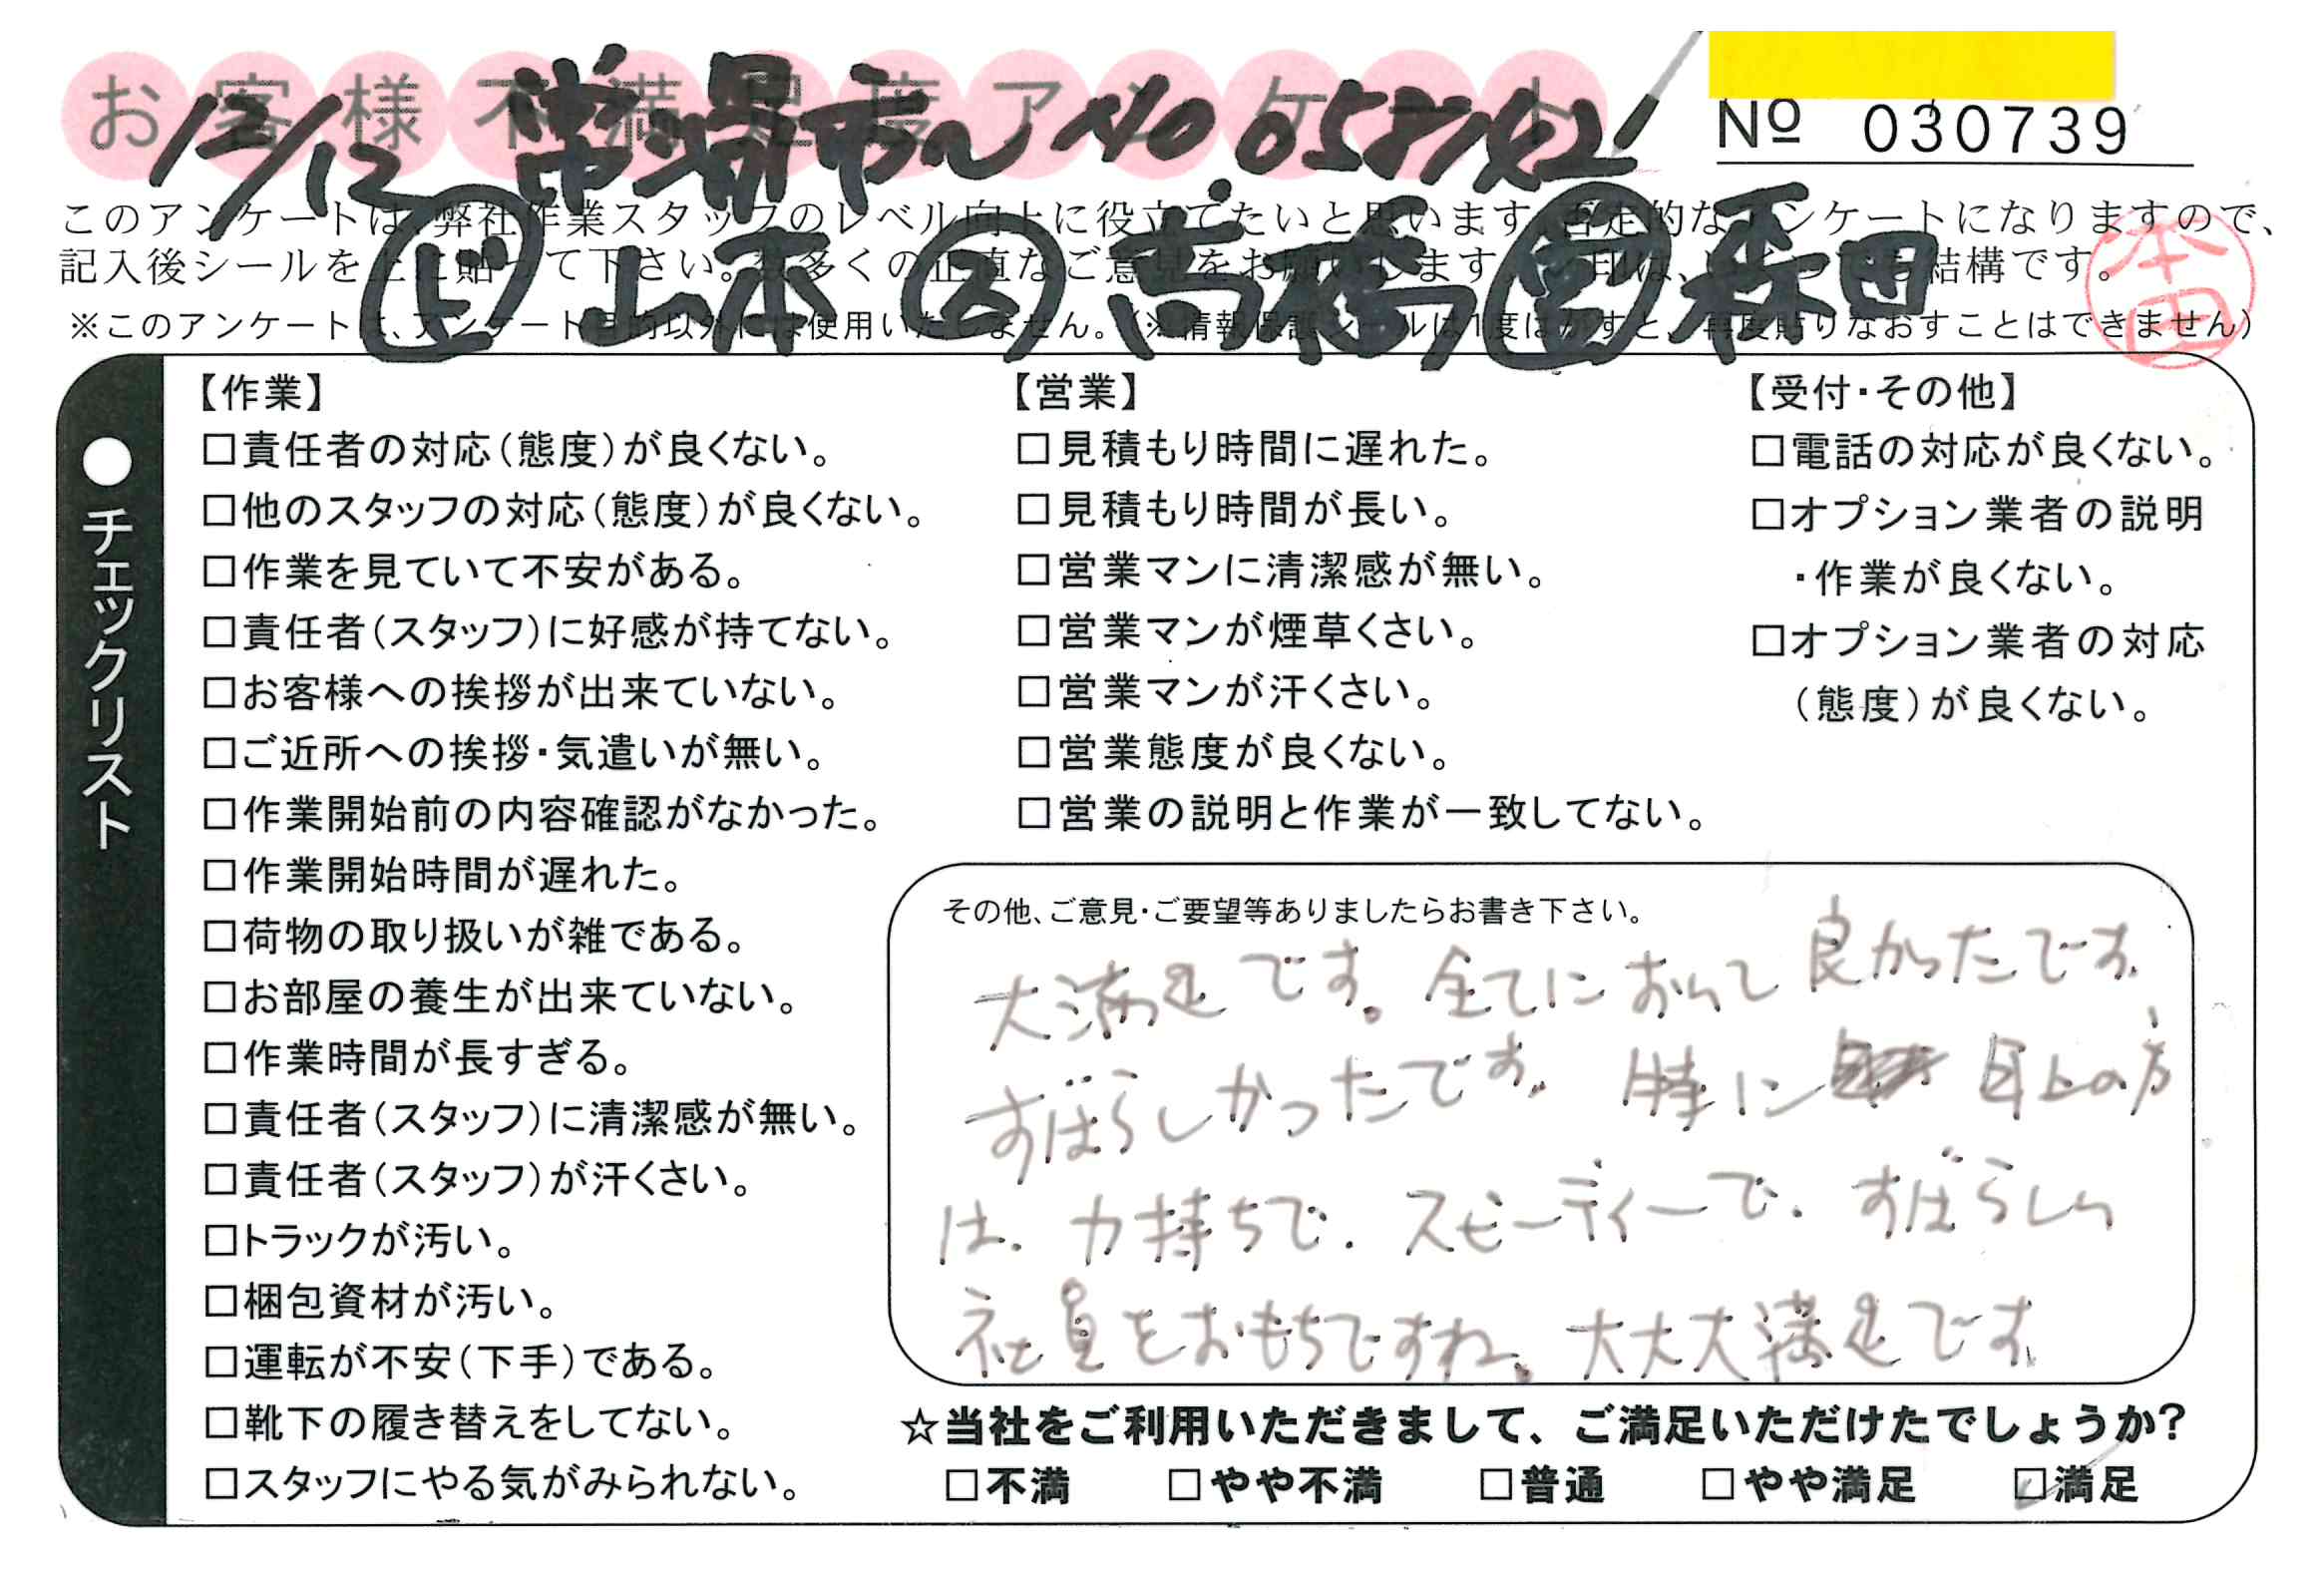 お客様不満足度アンケート
12/12 常 市〜 No 0581142
No 030739
このアンケートは、弊社作業スタッフのレベル向上に役立てたいと思います。否定的なアンケートになりますので、
記入後シールを上に貼って下さい。 多くの正直なご意見をお願いします。 印は、 結構です。
山本 高橋 営 森田
本田
※このアンケートは、アンケート目的以外には使用いたしません。(※情報保護シールは1度はがすと、再度貼りなおすことはできません)
●チェックリスト
【作業】
□責任者の対応(態度)が良くない。
□他のスタッフの対応(態度)が良くない。
□作業を見ていて不安がある。
□責任者(スタッフ)に好感が持てない。
□お客様への挨拶が出来ていない。
□ご近所への挨拶・気遣いが無い。
□作業開始前の内容確認がなかった。
□作業開始時間が遅れた。
□荷物の取り扱いが雑である。
□お部屋の養生が出来ていない。
□作業時間が長すぎる。
□責任者(スタッフ)に清潔感が無い。
□責任者(スタッフ)が汗くさい。
□トラックが汚い。
□梱包資材が汚い。
□運転が不安(下手)である。
□靴下の履き替えをしてない。
□スタッフにやる気がみられない。
【営業】
□見積もり時間に遅れた。
□見積もり時間が長い。
□営業マンに清潔感が無い。
□営業マンが煙草くさい。
□営業マンが汗くさい。
□営業態度が良くない。
□営業の説明と作業が一致してない。
【受付・その他】
□電話の対応が良くない。
□オプション業者の説明
・作業が良くない。
□オプション業者の対応
(態度)が良くない。
その他、ご意見・ご要望等ありましたらお書き下さい。
大満足です。全てにおいて良かったです。
すばらしかったです。特に 目上の方
は、力持ちで、スピーディーで、すばらしい
社員をおもちですね。大大大満足です。
☆当社をご利用いただきまして、ご満足いただけたでしょうか?
□不満 □やや不満 □普通 □やや満足 □満足